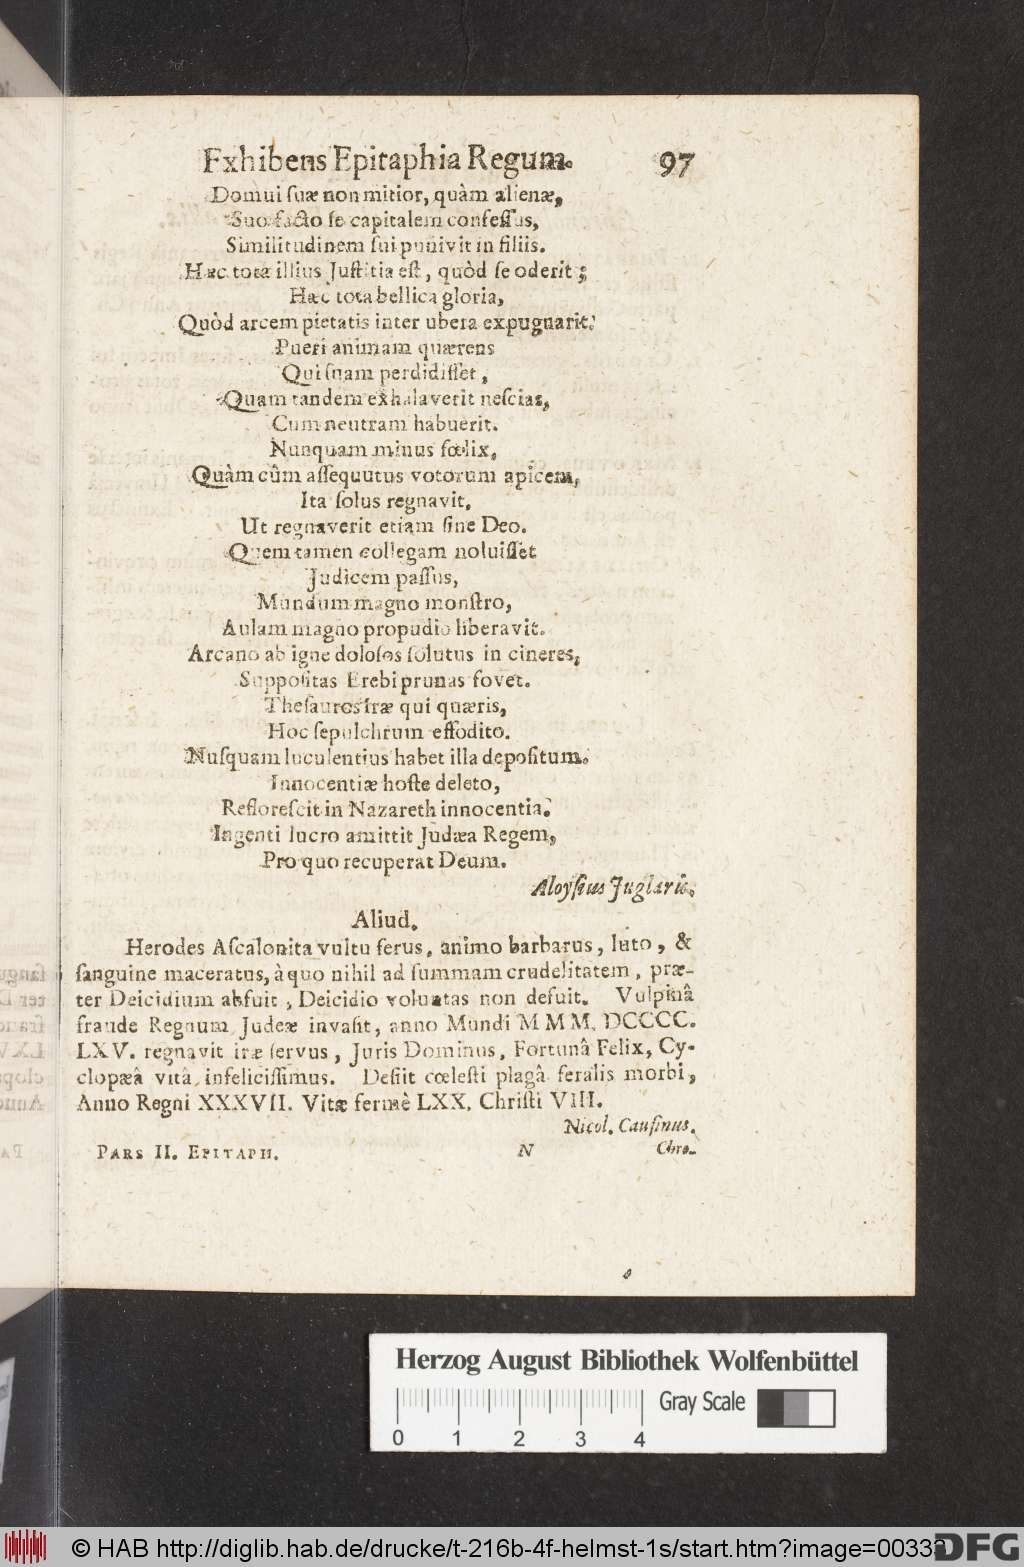 Exhibens Epitaphia Regum. 97
Domui ſuæ non mitior, quàm alienæ,
Suo facto ſe capitalem confeſſus,
Similitudinem ſui punivit in filiis.
Hæc tota illius Juſtitia eſt, quòd ſe oderit;
Hæc tota bellica gloria,
Quòd arcem pietatis inter ubera expugnarit.
Pueri animam quærens
Qui ſuam perdidiſſet,
Quam tandem exhalaverit neſcias,
Cum neutram habuerit.
Nunquam minus fœlix,
Quàm cûm aſſequutus votorum apicem,
Ita ſolus regnavit,
Ut regnaverit etiam ſine Deo.
Quem tamen collegam noluiſſet
Judicem paſſus,
Mundum magno monſtro,
Aulam magno propudio liberavit.
Arcano ab igne doloſos ſolutus in cineres,
Suppoſitas Erebi prunas fovet.
Theſauros iræ qui quæris,
Hoc ſepulchrum effodito.
Nuſquam luculentius habet illa depoſitum.
Innocentiæ hoſte deleto,
Refloreſcit in Nazareth innocentia.
Ingenti lucro amittit Judæa Regem,
Pro quo recuperat Deum.
Aloyſius Juglaris.
Aliud.
Herodes Aſcalonita vultu ferus, animo barbarus, luto, &
ſanguine maceratus, à quo nihil ad ſummam crudelitatem, præ-
ter Deicidium abfuit, Deicidio voluntas non defuit. Vulpinâ
fraude Regnum Judeæ invaſit, anno Mundi MMM. DCCCC.
LXV. regnavit iræ ſervus, Juris Dominus, Fortunâ Felix, Cy-
clopæâ vitâ infeliciſſimus. Deſiit cœleſti plagâ feralis morbi,
Anno Regni XXXVII. Vitæ fermè LXX. Chriſti VIII.
Nicol. Cauſinus.
PARS II. EPITAPH. N Chro-
Herzog August Bibliothek Wolfenbüttel
Gray Scale
0 1 2 3 4
© HAB http://diglib.hab.de/drucke/t-216b-4f-helmst-1s/start.htm?image=0033
DFG